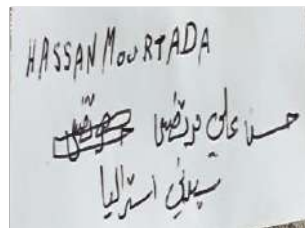 HASSAN MOURTADA
حسن علي مرتضى
سيدني استراليا